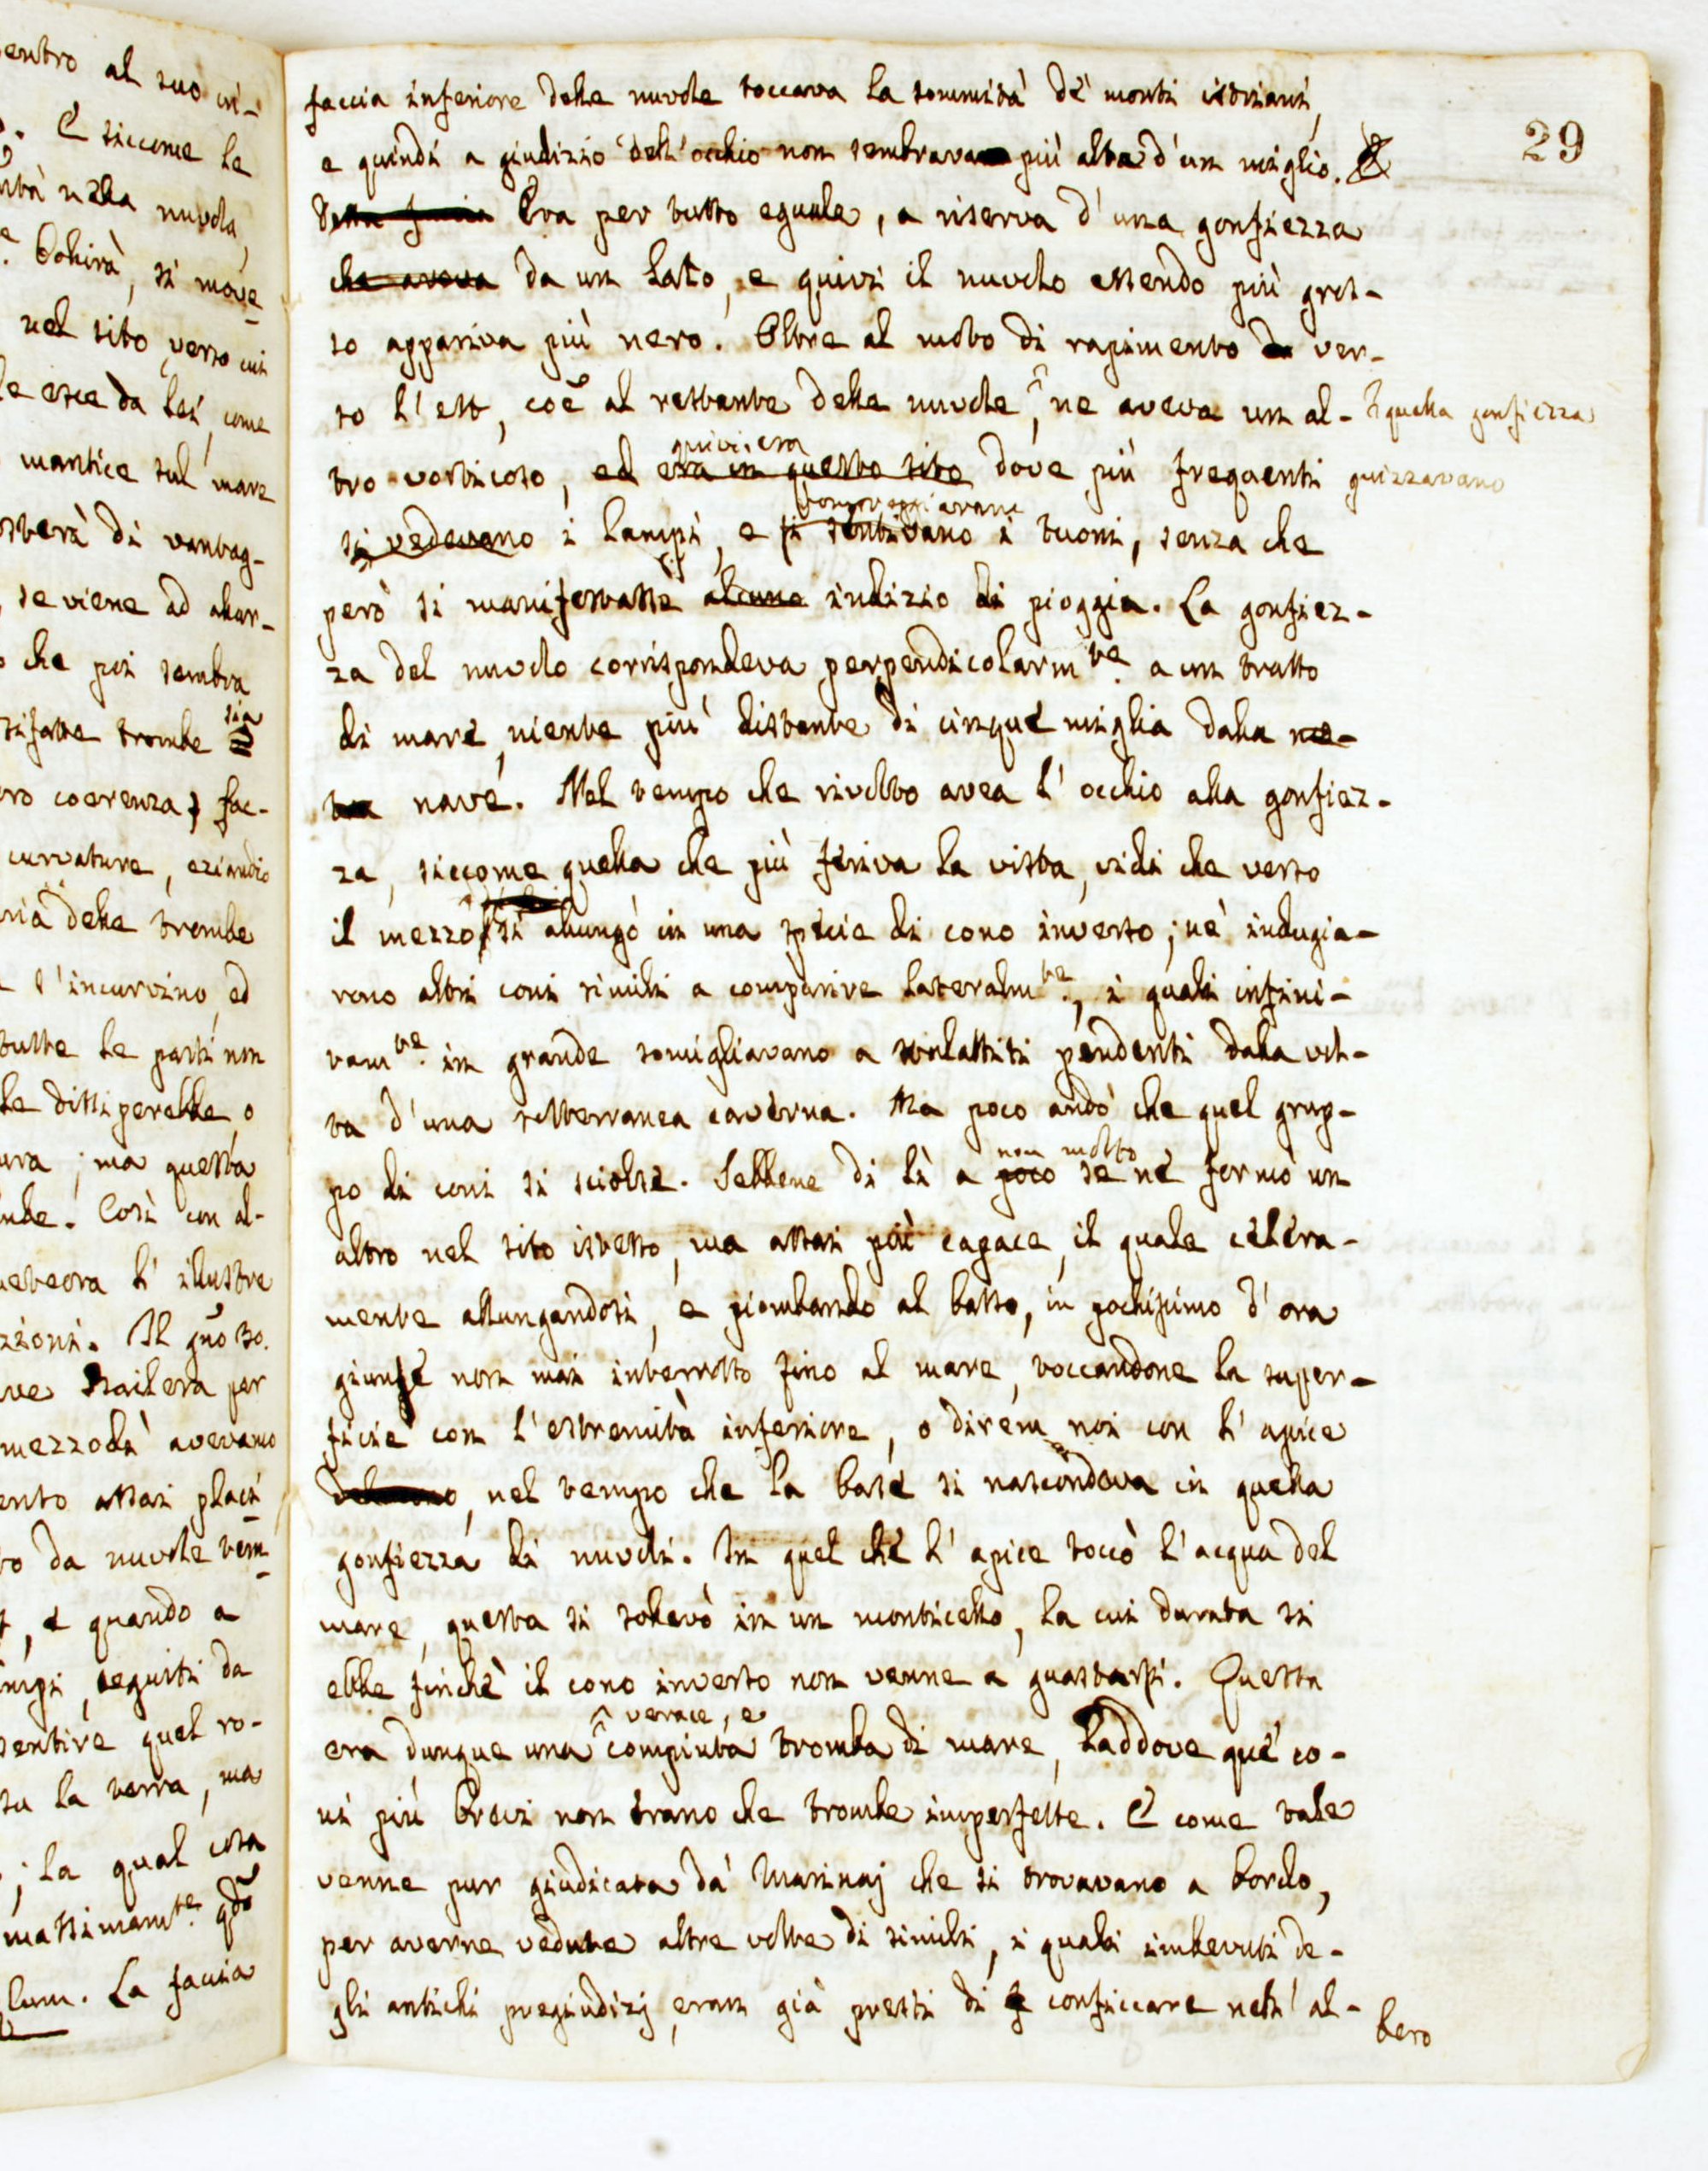 entro al suo vi-
. E siccome le
ntà nella nuvola,
. Bohirà, si move
nel sito verso cui
le esce da lei, come
mantice sul mare
sterà di vantag-
, se viene ad alzar-
o che poi sembra
sifatte trombe sia
ro coerenza, fac-
curvature, eziandio
ria delle trombe
l'incurvino, ed
tutte le parti non
le dissiperebbe, o
ura; ma questa
ube. Così con al-
meteora l'illustre
zioni. Il
per
mezzodì avevano
ento assai placi
to da nuvole tem-
, e quando a
ampi, seguiti da
sentire quel ro-
su la terra, ma
; la qual cosa
massimamte. qdo
lum. La faccia
29
faccia inferiore delle nuvole toccava la sommità de' monti istriani,
e quindi a giudizio dell'occhio non sembrava più alta d'un miglio.
Era per tutto eguale, a riserva d'una gonfiezza
che aveva da un lato, e quivi il nuvolo essendo più gros-
so appariva più nero. Oltre al moto di rapimento ver-
so l'est, coè al restante delle nuvole, ne aveva un al- quella gonfiezza
quivi era
tro vorticoso, ed era in questo sito dove più frequenti guizzavano
romoreggiavano
si vedevano i lampi, e si sentivano i tuoni, senza che
però si manifestasse alcuno indizio di pioggia. La gonfiez-
za del nuvolo corrispondeva perpendicolarmte. a un tratto
di mare, niente più distante di cinque miglia dalla no-
stra nave. Nel tempo che rivolto avea l'occhio alla gonfiez-
za, siccome quella che più feriva la vista, vidi che verso
il mezzo si allungò in una specie di cono inverso; nè indugia-
rono altri coni simili a comparire lateralmte., i quali infini-
tamte. in grande somigliavano a stalattiti pendenti dalla vol-
ta d'una sotterranea caverna. Ma poco andò che quel grup-
non molto
po di coni si sciolse. Sebbene di lì a poco se ne formò un
altro nel sito istesso, ma assai più capace, il quale celera-
mente allungandosi, e piombando al basso, in pochissimo d'ora
giunse non mai interrotto fino al mare, toccandone la super-
ficie con l'estremità inferiore, o direm noi con l'apice
del cono, nel tempo che la base si nascondeva in quella
gonfiezza di nuvoli. In quel che l'apice toccò l'acqua del
mare, questa si sollevò in un monticello, la cui durata si
ebbe finchè il cono inverso non venne a guastarsi. Questa
verace, e
era dunque una compiuta tromba di mare, laddove que' co-
ni più brevi non erano che trombe imperfette. E come tale
venne pur giudicata da' Marinaj che si trovavano a bordo,
per averne vedute altre volte di simili, i quali imbevuti de-
gli antichi pregiudizj, eran già presti di conficcare nell'al-
bero